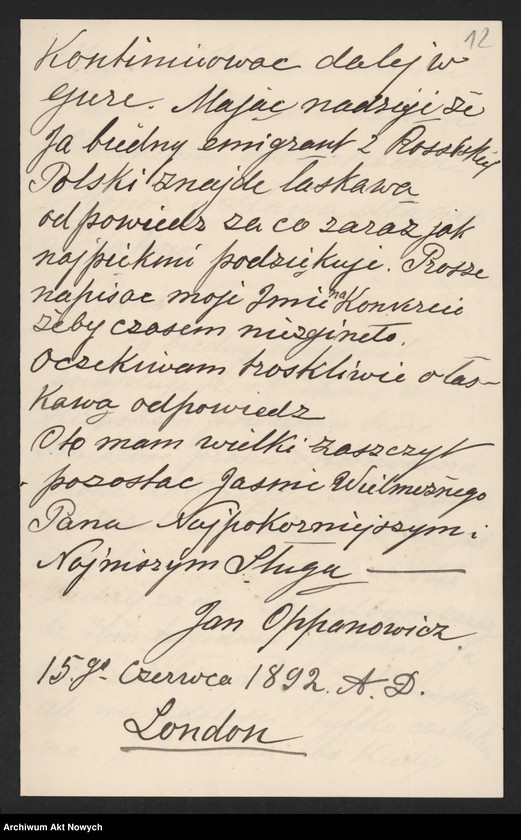 12
Kontiniuowac dalej w
gure. Mając nadzieji że
Ja biedny emigrant z Rosskkiej
Polski znajde łaskawą
odpowiedz za co zaraz jak
najpiekmi podziękuje. Prosze
napisac moji Jmie na Konvercie
żeby czasem niezgineło.
Oczekiwam troskliwie o łas-
kawą odpowiedz
Oto mam wielki zaszczyt
pozostac Jasmi Wielmożnego
Pana Najpokorniejszym i
Najniszym Sługą
Jan Oppanowicz.
15.go Czerwca 1892. A. D.
London
Archiwum Akt Nowych